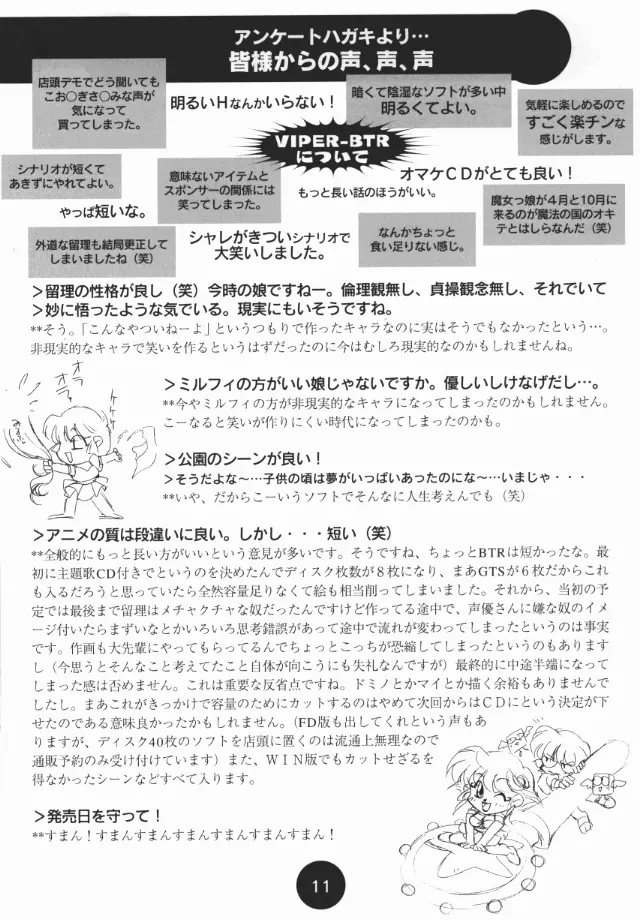 アンケートハガキより…
皆様からの声、声、声
店頭デモでどう聞いても
こお○ぎさ○みな声が
気になって
買ってしまった。
明るいHなんかいらない！
暗くて陰湿なソフトが多い中
明るくてよい。
気軽に楽しめるので
すごく楽チンな
感じがします。
VIPER-BTR
について
シナリオが短くて
あきずにやれてよい。
意味ないアイテムと
スポンサーの関係には
笑ってしまった。
オマケCDがとても良い！
もっと長い話のほうがいい。
やっぱ短いな。
魔女っ娘が4月と10月に
来るのが魔法の国のオキ
テとはしらなんだ（笑）
外道な留理も結局更正して
しまいましたね（笑）
シャレがきついシナリオで
大笑いしました。
なんかちょっと
食い足りない感じ。
＞留理の性格が良し（笑）今時の娘ですねー。倫理観無し、貞操観念無し、それでいて
＞妙に悟ったような気でいる。現実にもいそうですね。
**そう。「こんなやついねーよ」というつもりで作ったキャラなのに実はそうでもなかったという…。
非現実的なキャラで笑いを作るというはずだったのに今はむしろ現実的なのかもしれませんね。
オラオラ
＞ミルフィの方がいい娘じゃないですか。優しいしけなげだし…。
**今やミルフィの方が非現実的なキャラになってしまったのかもしれません。
こーなると笑いが作りにくい時代になってしまったのかも。
ケケケ
＞公園のシーンが良い！
＞そうだよな～…子供の頃は夢がいっぱいあったのにな～…いまじゃ・・・
**いや、だからこーいうソフトでそんなに人生考えんでも（笑）
＞アニメの質は段違いに良い。しかし・・・短い（笑）
**全般的にもっと長い方がいいという意見が多いです。そうですね、ちょっとBTRは短かったな。最
初に主題歌CD付きでというのを決めたんでディスク枚数が８枚になり、まあGTSが６枚だからこれ
も入るだろうと思っていたら全然容量足りなくて絵も相当削ってしまいました。それから、当初の予
定では最後まで留理はメチャクチャな奴だったんですけど作ってる途中で、声優さんに嫌な奴のイメ
ージ付いたらまずいなとかいろいろ思考錯誤があって途中で流れが変わってしまったというのは事実
です。作画も大先輩にやってもらってるんでちょっとこっちが恐縮してしまったというのもあります
し（今思うとそんなこと考えてたこと自体が向こうにも失礼なんですが）最終的に中途半端になって
しまった感は否めません。これは重要な反省点ですね。ドミノとかマイとか描く余裕もありませんで
したし。まあこれがきっかけで容量のためにカットするのはやめて次回からはＣＤにという決定が下
せたのである意味良かったかもしれません。（FD版も出してくれという声もあ
りますが、ディスク40枚のソフトを店頭に置くのは流通上無理なので
通販予約のみ受け付けています）また、ＷＩＮ版でもカットせざるを
得なかったシーンなどすべて入ります。
＞発売日を守って！
**すまん！すまんすまんすまんすまんすまんすまん！
11